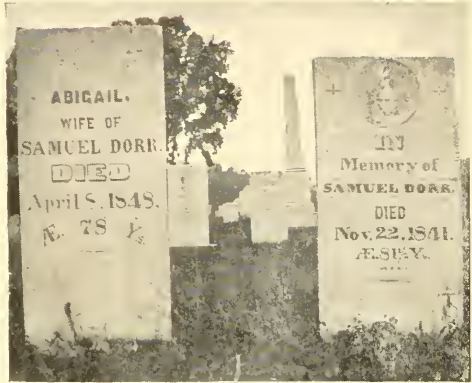 ABIGAIL,
WIFE OF
SAMUEL DORR.
DIED
April 8, 1848.
Æ. 78 Ys.
IN
Memory of
SAMUEL DORR.
DIED
Nov. 22, 1841.
Æ. 81½ Y.